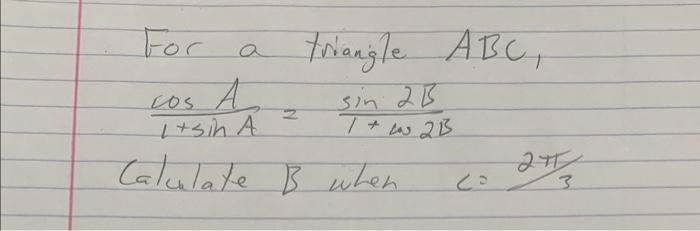 For a triangle ABC,
cos A / 1+sin A = sin 2B / 1+cos 2B
Calculate B when c= 2π/3